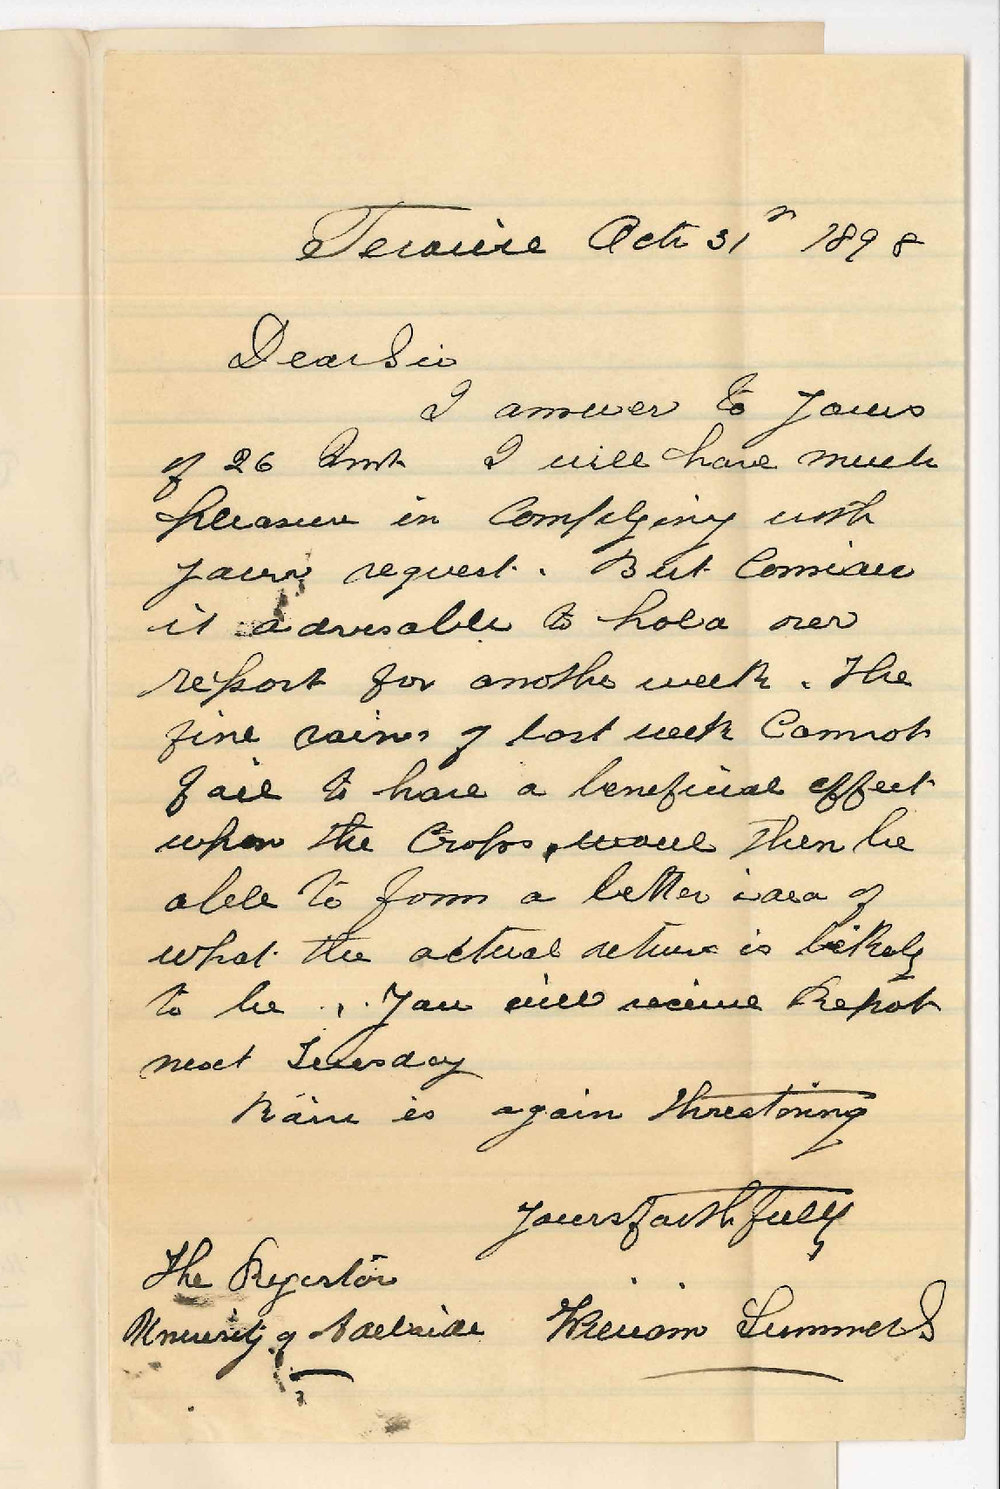 Terowie Oct 31st 1898
Dear Sir
I answer to yours
of 26 Inst I will have much
pleasure in Complying with
your request. But Consider
it advisable to hold over
report for anothe week. The
fine rains of last week Cannot
fail to have a beneficial effect
upon the Crops, would then be
able to form a better idea of
what the actual return is likely
to be. You will receive Report
next Tuesday
Rain is again threatning
Yours faithfully
The Registor
University of Adelaide William Summers